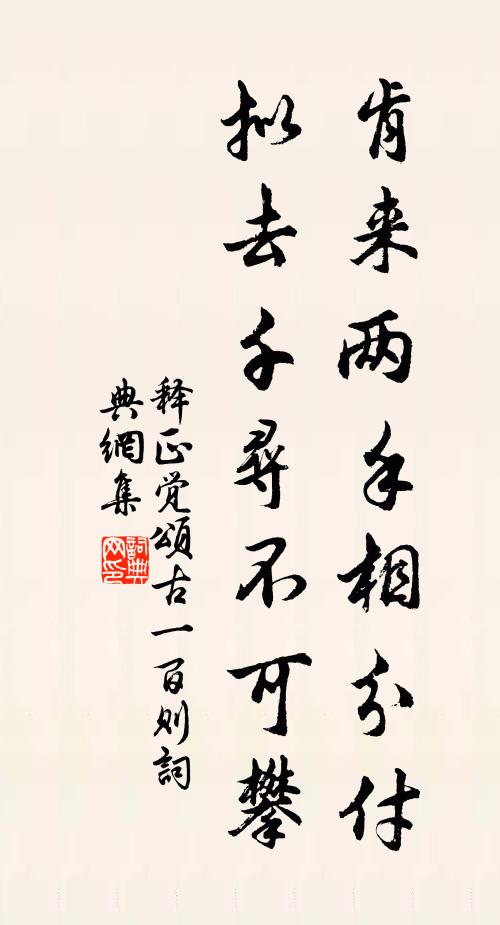 肯来两手相分付
拟去千尋不可攀
释正觉頌古一百则詞
典網集
詞典
网印